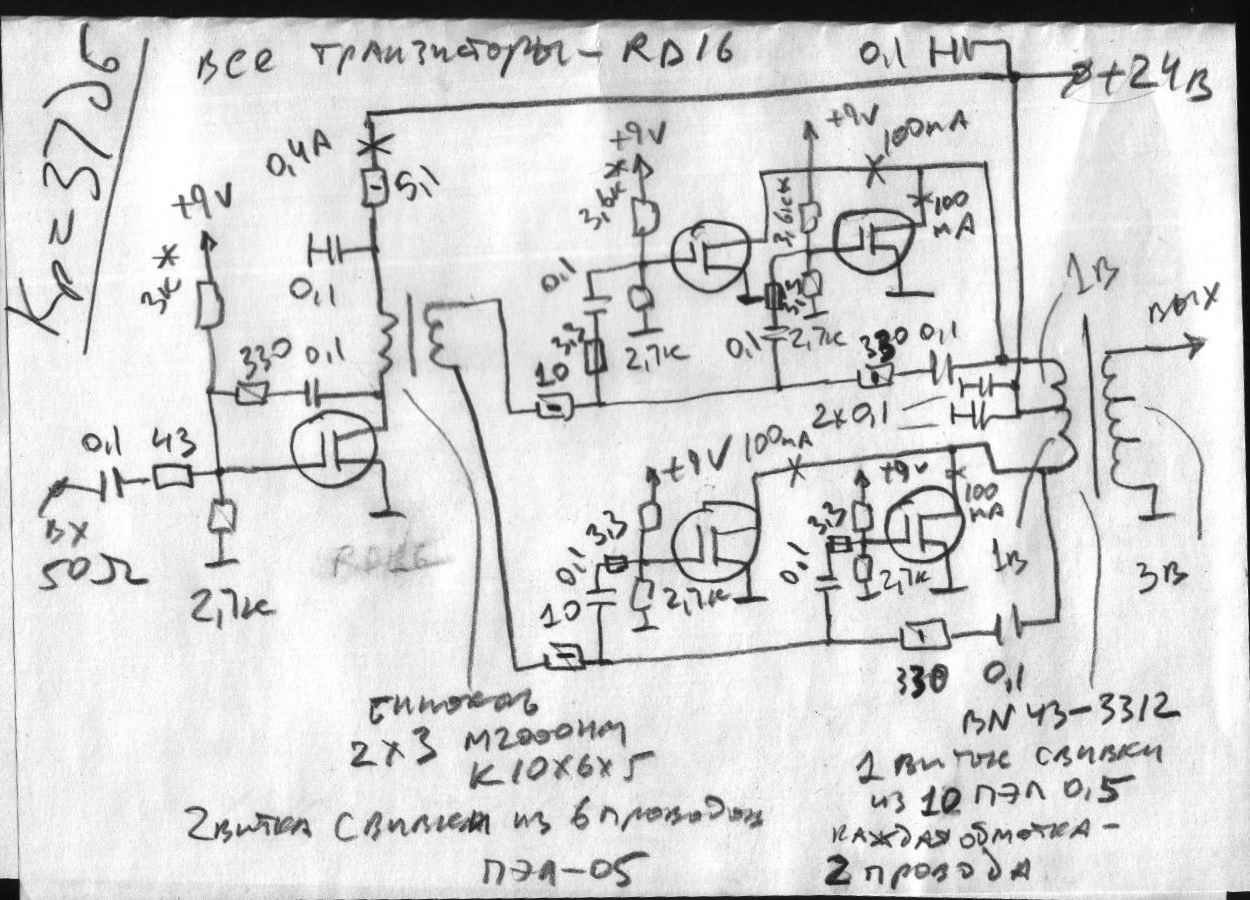 Все транзисторы - RD16
0,1
+24В
Kр = 37дб
0,4А
5,1
+9V
3к *
0,1
330 0,1
0,1 43
Вх
50Ω
2,7к
RD16
+9V
*
3,6к
0,1
3,3
2,7к
10
+9V
100mA
3,6к
100
mA
3,3
0,1
2,7к
330 0,1
2x0,1
1В
Вых
+9V
100mA
3,3
0,1
2,7к
10
+9V
100
mA
3,3
0,1
2,7к
1В
3В
330 0,1
Бинокль
2x3 М2000НМ
К10x6x5
2 витка свивки из 6 проводов
ПЭЛ-05
BN43-3312
1 виток свивки
из 10 ПЭЛ 0,5
каждая обмотка -
2 провода